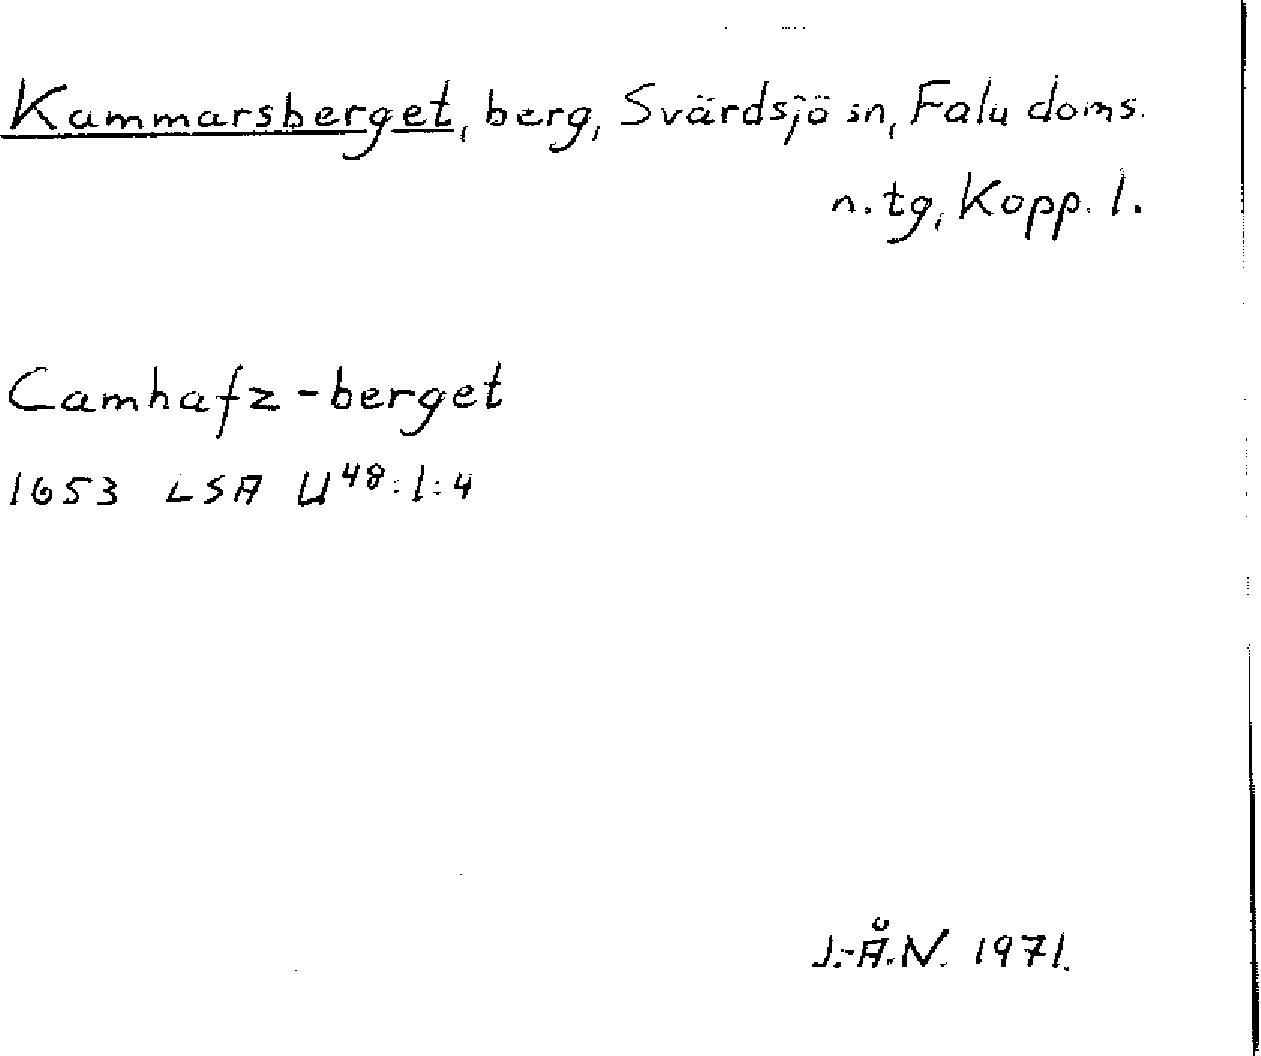 Kammarsberget, berg, Svärdsjö sn, Falu doms.
n. tg, Kopp. l.
Camhafz-berget
1653 LSA U48:1:4
J.-Å.N. 1971.